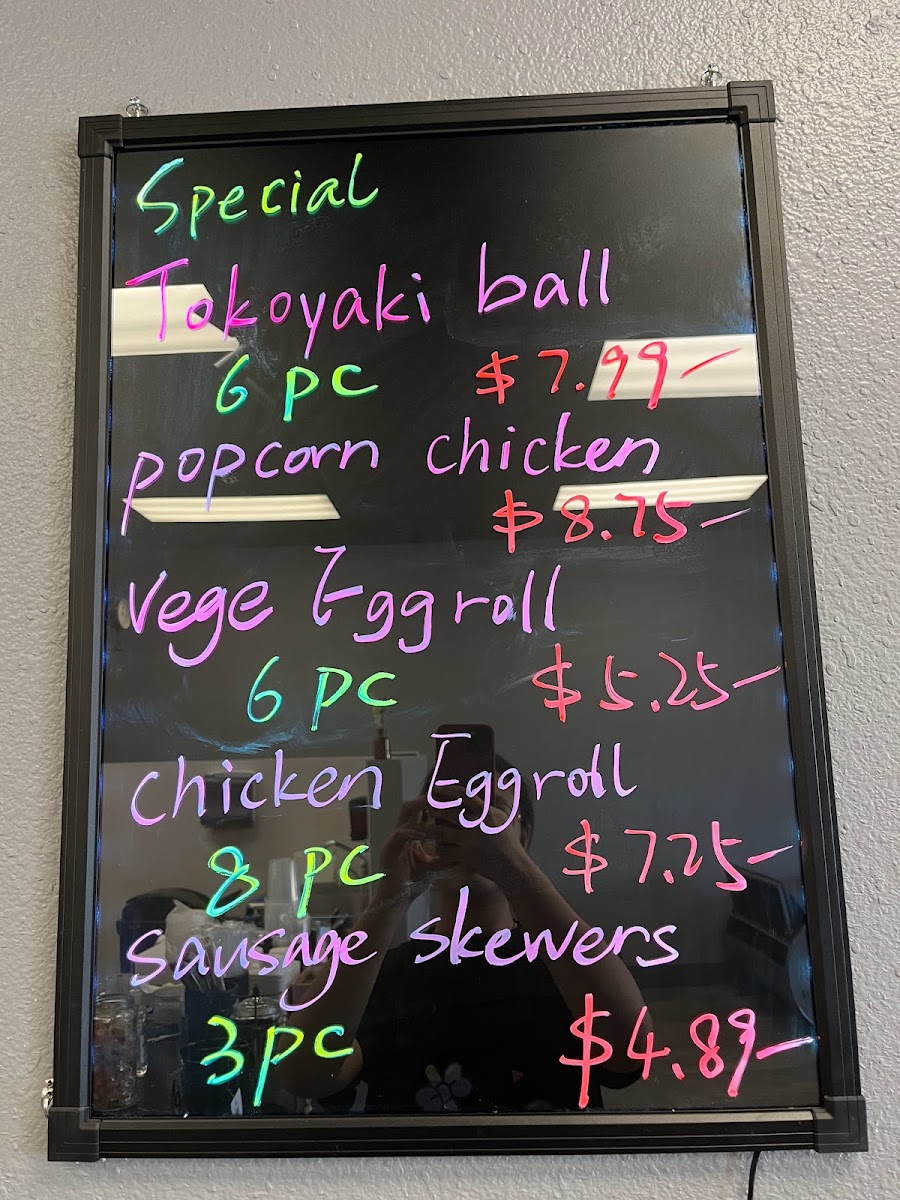 Special
Tokoyaki ball
6 pc $7.99-
popcorn chicken
$8.75-
Vege Eggroll
6 pc $5.25-
chicken Eggroll
8 pc $7.25-
Sausage skewers
3pc $4.89-